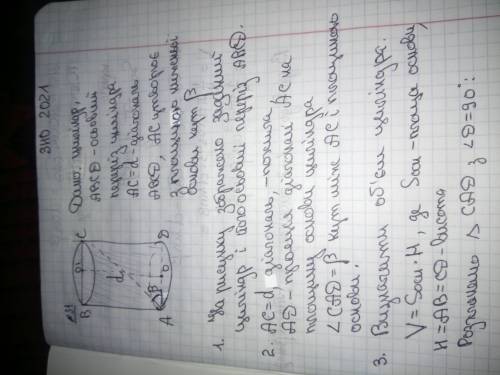 ЗНО 2021
Дано: циліндр,
ABCD - осьовий
переріз циліндра
AC = d - діагональ
ABCD, AC утворює
з площиною нижньої
основи кут β
B
C
O
d
A
β
O
D
1. На рисунку зображено заданий
циліндр і його осьовий переріз ABCD.
2. AC = d, діагональ, - похила
AD - проекція діагоналі AC на
площину основи циліндра
∠CAD = β кут між AC і площиною
основи.
3. Визначити об'єм циліндра.
V = Sосн · H, де Sосн - площа основи,
H = AB = CD - висота
Розглянемо △ CAD з ∠D = 90°: